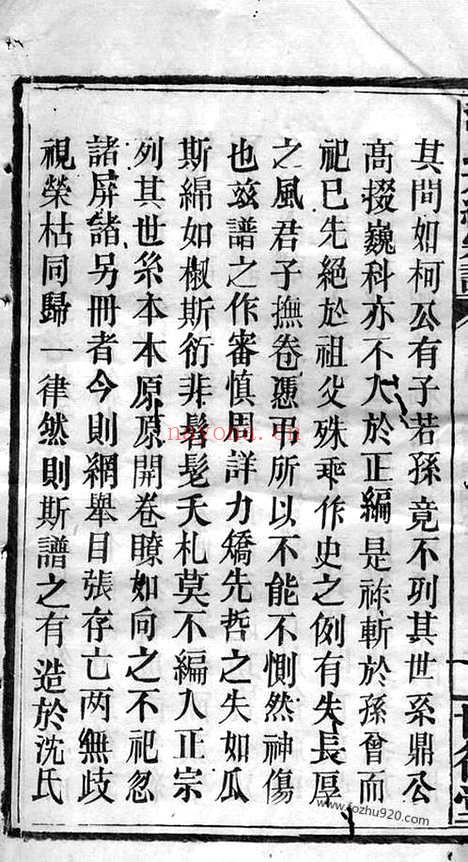 其間如柯公有子若孫竟不列其世系鼎公
高掇巍科亦不入於正編是祢斬於孫曾而
祀已先絕於祖父殊乖作史之例有失長厚
之風君子撫卷憑弔所以不能不惻然神傷
也玆譜之作審慎周詳力矯先哲之失如瓜
斯綿如椒斯衍非髫髦夭札莫不編入正宗
列其世系本本原原開卷瞭如向之不祀忽
諸屏諸另冊者今則網舉目張存亡两無歧
視榮枯同歸一律然則斯譜之有造於沈氏
nayona.cn
www.fozhu920.com